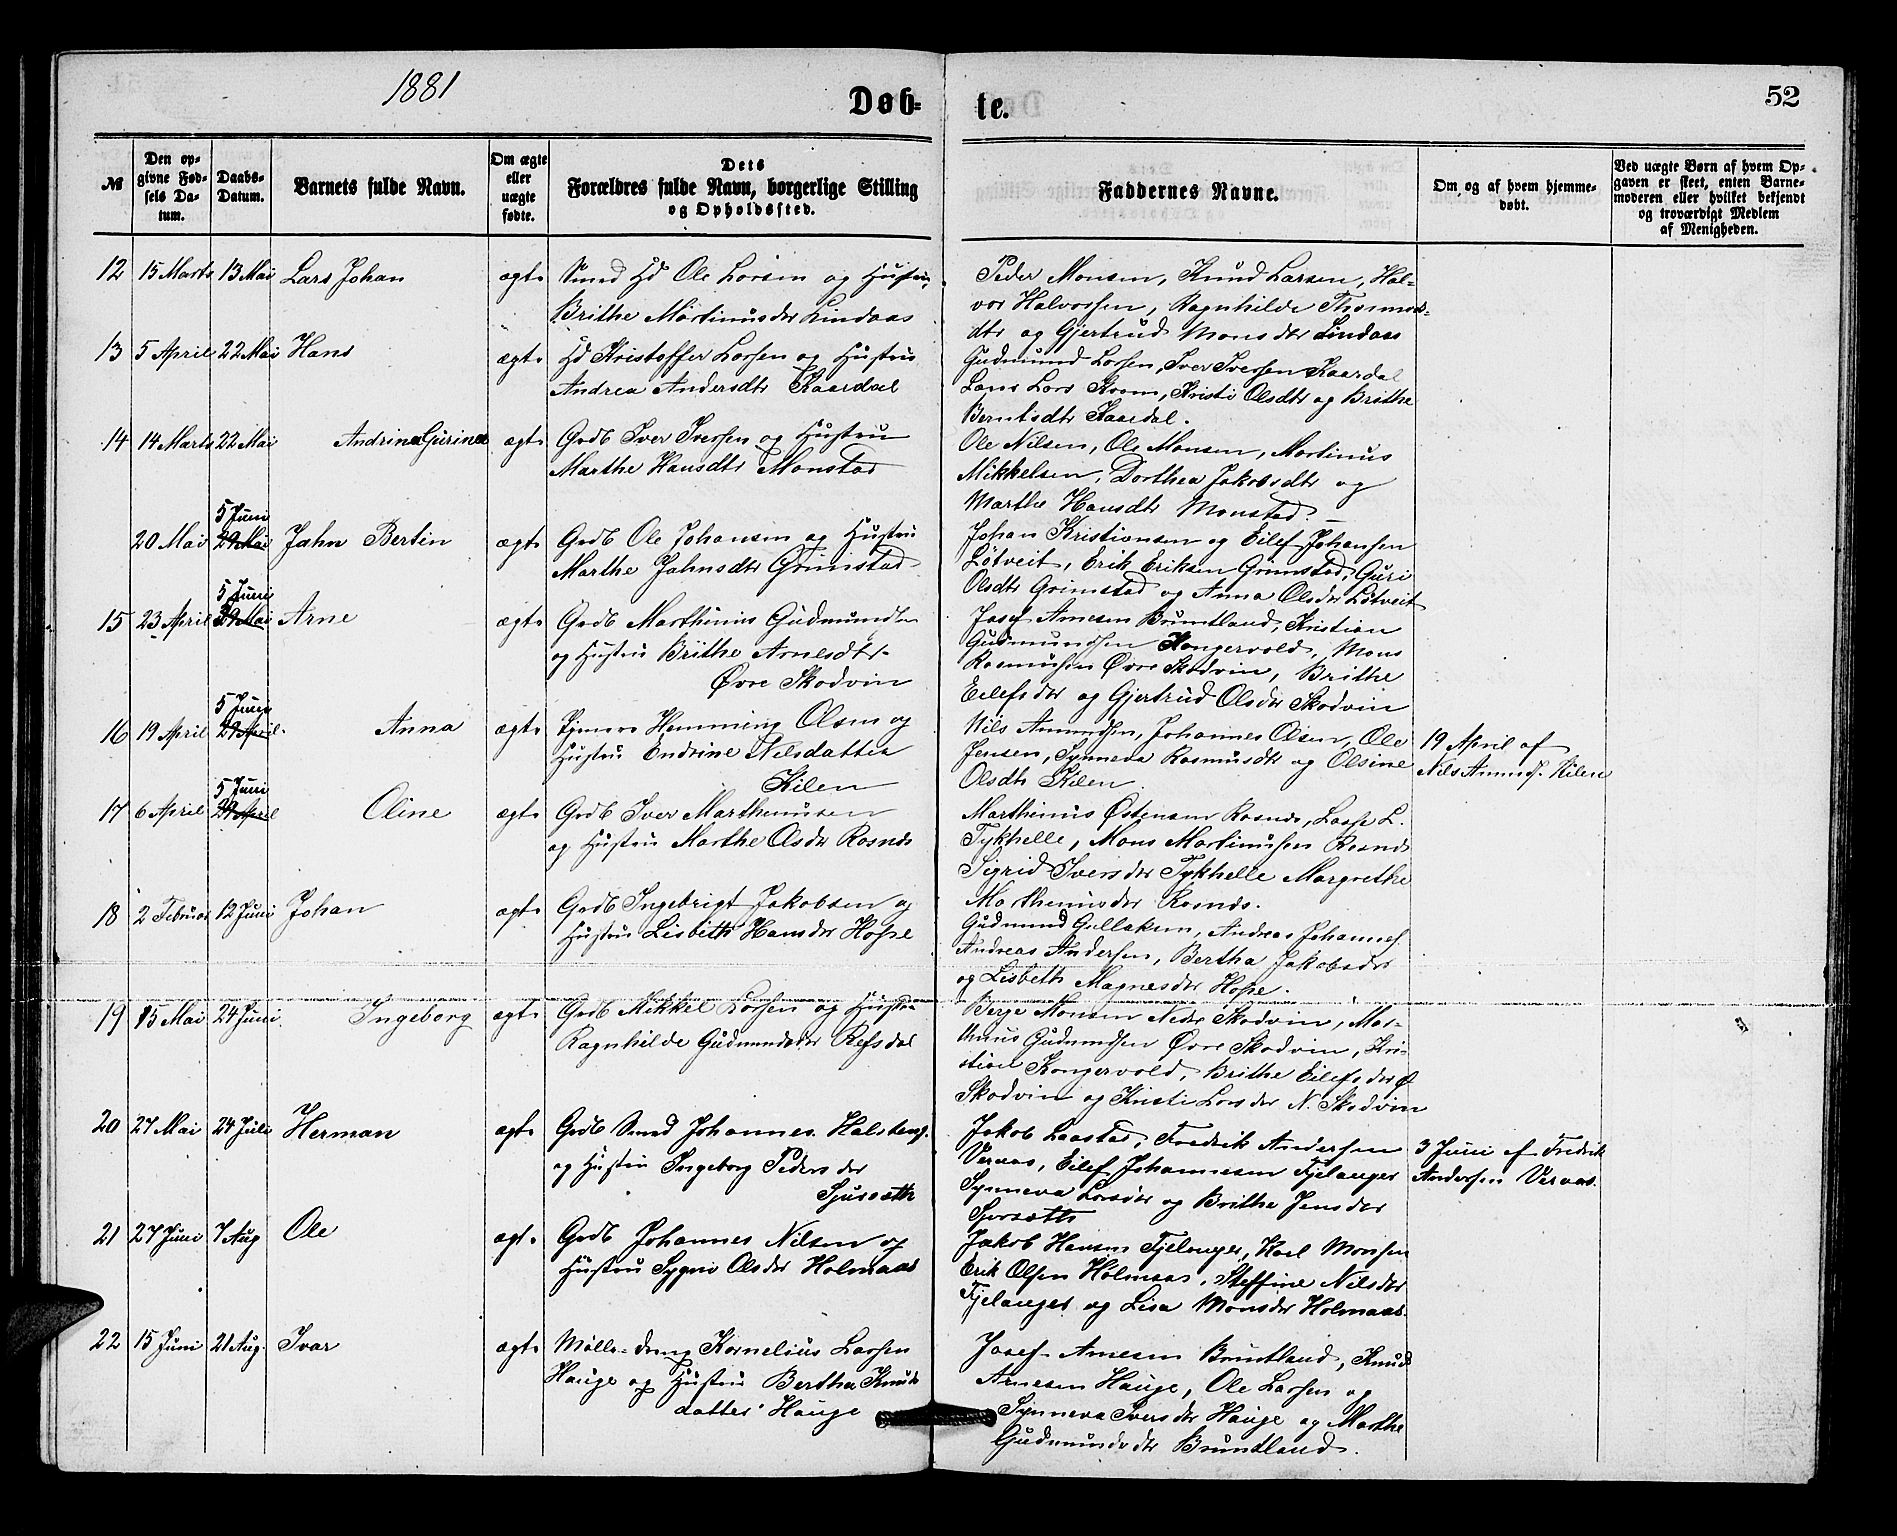 1881
Døb-
te.
52
№
Den op-
givne Fød-
sels Da-
tum.
Daabs-
Datum.
Barnets fulde Navn.
Om ægte
eller
uægte
fødte.
Dets
Forældres fulde Navn, borgerlige Stilling
og Opholdssted.
Faddernes Navne.
Om og af hvem hjemme-
døbt.
Ved uægte Børn af hvem Op-
gaven er skeet, enten Barne-
moderen eller hvilket bekjendt
og troværdigt Medlem
af Menigheden.
12 15 Marts 13 Mai Lars Johan ægte Smed Hd Ole Larsen og Hustru
Brithe Martinusdtr Lindaas
Peder Monsen, Knud Larsen, Hal-
vor Halvorsen, Ragnhilde Thormods-
dtr og Gjertrud Monsdtr Lindaas
13 5 April 22 Mai Hans ægte Hd Kristoffer Larsen og Hustru
Andrea Andersdtr Kaardal
Gudmund Larsen, Iver Iversen Kaardal
Lars Lars Strøm, Kristi Olsdtr og Brithe
Berntsdtr Kaardal.
14 14 Marts 22 Mai Andrine Gurine ægte Grdb Iver Iversen og Hustru
Marthe Hansdtr Monstad
Ole Nilsen, Ole Monsen, Martinus
Mikkelsen, Dorthea Jakobsdtr og
Marthe Hansdtr Monstad.
5 Juni
20 Mai 29 Mai Jahn Bertin ægte Grdb Ole Johansen og Hustru
Marthe Jahnsdtr Grimstad
Johan Kristiansen og Eilef Johansen
Løtveit, Erik Eriksen Grimstad, Guri
Olsdtr Grimstad og Anna Olsdtr Løtveit
5 Juni
15 23 April 29 Mai Arne ægte Grdb Marthinus Gudmunds
og Hustru Brithe Arnesdtr
Øvre Skodvin
Josef Arnesen Bruntland, Kristian
Gudmundsen Kongervold, Mons
Rasmusen Øvre Skodvin, Brithe
Eilefsdtr og Gjertrud Olsdtr Skodvin
5 Juni
16 19 April 29 April Anna ægte Hemming Olsen og
Hustru Endrine Nilsdatter
Kilen
Nils Amundsen, Johannes Olsen, Ole
Jensen, Synneva Rasmusdtr og Olsine
Olsdtr Kilen
19 April af
Nils Amunds. Kilen
5 Juni
17 6 April 29 April Oline ægte Grdb Iver Marthinusen
og Hustru Marthe Olsdtr Rosnes
Marthinus Østensen Rosnes, Lasse L.
Tykhelle, Mons Martinusen Rosnes
Sigrid Iversdtr Tykhelle Margrethe
Marthinusdtr Rosnes.
18 2 Februar 12 Juni Johan ægte Grdb Ingebrigt Jakobsen og
Hustru Lisbeth Hansdtr Hope
Gudmund Gullaksen, Andreas Johannes.
Andreas Andersen, Bertha Jakobsdtr
og Lisbeth Magnesdtr Hope.
19 15 Mai 24 Juni Ingeborg ægte Grdb Mikkel Larsen og Hustru
Ragnhilde Gudmundsdtr Refsdal
Berje Monsen Nedre Skodvin, Mar-
thinus Gudmundsen Øvre Skodvin, Kri-
stian Kongervold, Brithe Eilefsdtr Ø
Skodvin og Kristi Larsdtr N. Skodvin
20 27 Mai 24 Juli Herman ægte Grdb Smed Johannes Halstens.
og Hustru Ingeborg Pedersdtr
Sjursæth
Jakob Laastad, Fredrik Andersen
Vernas, Eilef Johannesen Fjelanger
Synneva Larsdtr og Brithe Jensdtr
Sjursæth
3 Juni af Fredrik
Andersen Vernas.
21 27 Juni 7 Aug Ole ægte Grdb Johannes Nilsen og
Hustru Sygni Olsdtr Holmaas
Jakob Hansen Fjelanger, Karl Monsen
Erik Olsen Holmaas, Steffine Nilsdtr
Fjelanger og Lisa Monsdtr Holmaas
22 15 Juni 21 Aug. Ivar ægte Mølle-dreng Kornelius Larsen
Hauge og Hustru Berthe Knuds
datter Hauge
Josef Arnesen Bruntland, Knud
Arnesen Hauge, Ole Larsen og
Synneva Iversdtr Hauge og Marthe
Gudmundsdtr Bruntland.